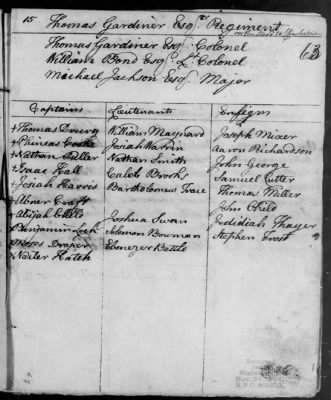 15 Thomas Gardiner Esqrs Regiment
63
Thomas Gardiner Esqr Colonel
William Bond Esqr Lt Colonel
Michael Jackson Esqr Major
Captains Lieutenants Ensigns
+Thomas Drury William Maynard Joseph Mixer
+Phineas Cooke Josiah Warren Aaron Richardson
+Nathan Fuller Nathan Smith John George
+Isaac Hall Caleb Brooks Samuel Cutter
+Josiah Harris Bartholomew Trace Thomas Miller
Abner Craft John Child
+Abijah Child Joshua Swan Jedidiah Thayer
Benjamin Lock Solomon Bowman Stephen Frost
Moses Draper Ebenezer Battle
Nailer Hatch